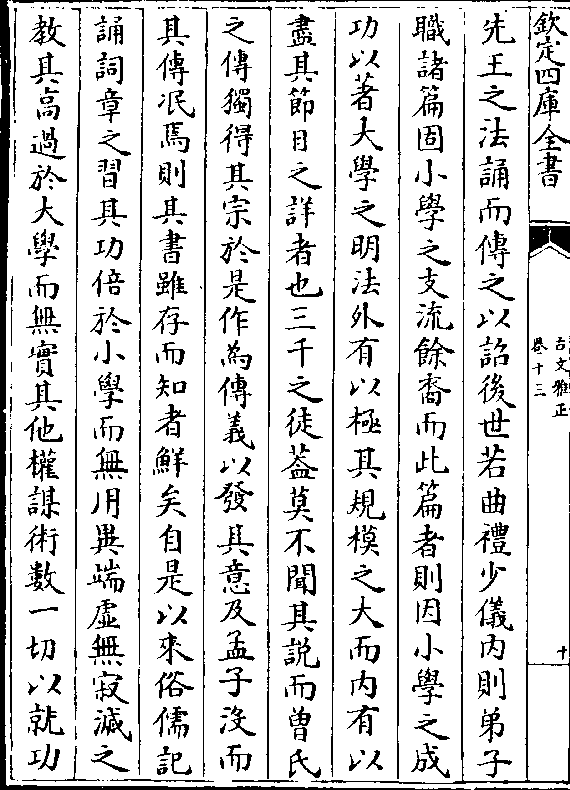 欽定四庫全書
古文雅正
卷十三
十
先王之法誦而傳之以詔後世若曲禮少儀内則弟子
職諸篇固小學之支流餘裔而此篇者則因小學之成
功以著大學之明法外有以極其規模之大而内有以
盡其節目之詳者也三千之徒葢莫不聞其説而曽氏
之傳獨得其宗於是作為傳義以發其意及孟子沒而
其傳泯焉則其書雖存而知者鮮矣自是以來俗儒記
誦詞章之習其功倍於小學而無用異端虛無寂滅之
教其高過於大學而無實其他權謀術數一切以就功